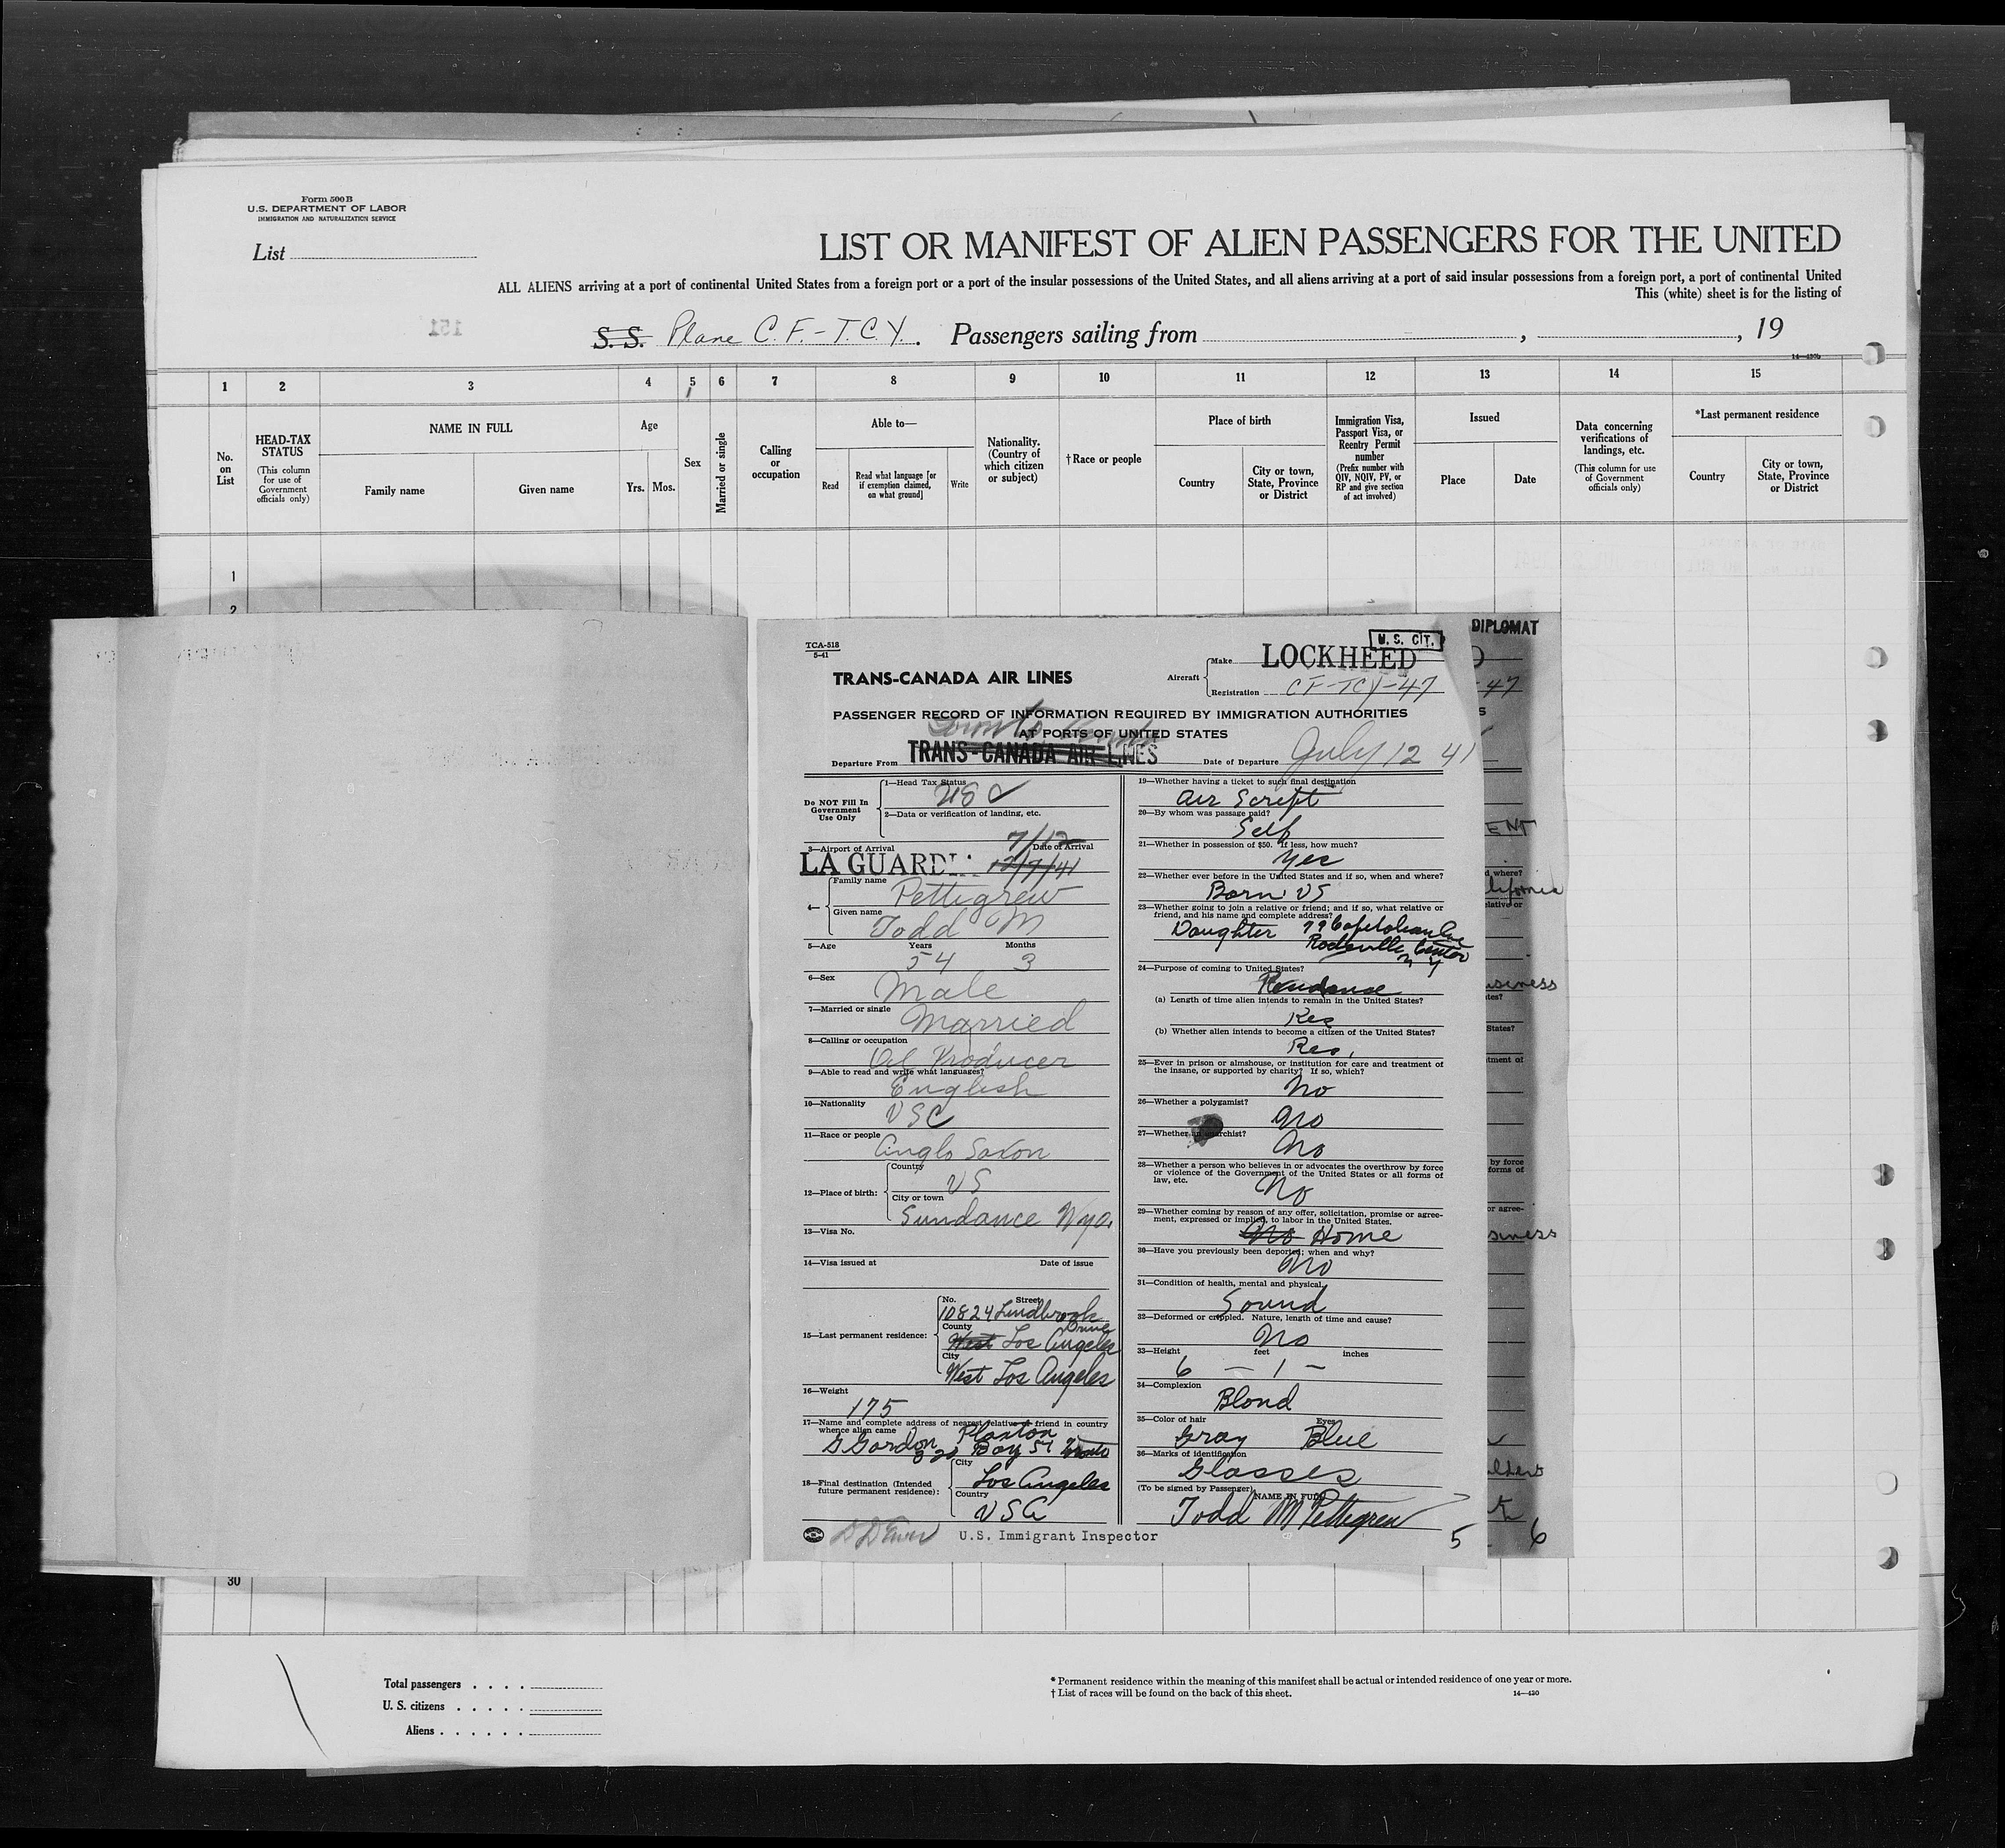 Form 500 B
U.S. DEPARTMENT OF LABOR
IMMIGRATION AND NATURALIZATION SERVICE
List
LIST OR MANIFEST OF ALIEN PASSENGERS FOR THE UNITED
ALL ALIENS arriving at a port of continental United States from a foreign port or a port of the insular possessions of the United States, and all aliens arriving at a port of said insular possessions from a foreign port, a port of continental United
This (white) sheet is for the listing of
151
S. S. Plane C.F.-T.C.Y. Passengers sailing from , , 19
14—430b
1 2 3 4 5 6 7 8 9 10 11 12 13 14 15
No. on List
HEAD-TAX STATUS
(This column for use of Government officials only)
NAME IN FULL
Family name
Given name
Age
Yrs. Mos.
Sex
Married or single
Calling or occupation
Able to—
Read
Read what language [or if exemption claimed, on what ground]
Write
Nationality. (Country of which citizen or subject)
†Race or people
Place of birth
Country
City or town, State, Province or District
Immigration Visa, Passport Visa, or Reentry Permit number
(Prefix number with QIV, NQIV, PV, or RP and give section of act involved)
Issued
Place
Date
Data concerning verifications of landings, etc.
(This column for use of Government officials only)
*Last permanent residence
Country
City or town, State, Province or District
1
2
TCA-518
5-41
U. S. CIT.
DIPLOMAT
TRANS-CANADA AIR LINES
Aircraft
Make LOCKHEED
Registration CF-TCY-47
PASSENGER RECORD OF INFORMATION REQUIRED BY IMMIGRATION AUTHORITIES
AT PORTS OF UNITED STATES
Toronto
Departure From TRANS-CANADA AIR LINES Date of Departure July 12 41
Do NOT Fill In Government Use Only
1—Head Tax Status
USC
2—Data or verification of landing, etc.
7/12
3—Airport of Arrival Date of Arrival
LA GUARDIA 12/7/41
4— Family name
Pettigrew
Given name
Todd M
5—Age Years Months
54 3
6—Sex
Male
7—Married or single
Married
8—Calling or occupation
Oil Producer
9—Able to read and write what languages?
English
10—Nationality
USC
11—Race or people
Anglo Saxon
12—Place of birth:
Country
US
City or town
Sundance Wyo.
13—Visa No.
14—Visa issued at Date of issue
15—Last permanent residence:
No. Street
10824 Lindbrook Drive
County
West Los Angeles
City
West Los Angeles
16—Weight
175
17—Name and complete address of nearest relative or friend in country
whence alien came
G Gordon Plaxton
320 Bay St Toronto
18—Final destination (Intended future permanent residence):
City
Los Angeles
Country
USA
U.S. Immigrant Inspector
19—Whether having a ticket to such final destination
Air Script
20—By whom was passage paid?
Self
21—Whether in possession of $50. If less, how much?
Yes
22—Whether ever before in the United States and if so, when and where?
Born US
23—Whether going to join a relative or friend; and if so, what relative or
friend, and his name and complete address?
Daughter
Rockville Center
N Y
24—Purpose of coming to United States?
Residence
(a) Length of time alien intends to remain in the United States?
Res
(b) Whether alien intends to become a citizen of the United States?
Res.
25—Ever in prison or almshouse, or institution for care and treatment of
the insane, or supported by charity? If so, which?
No
26—Whether a polygamist?
No
27—Whether an anarchist?
No
28—Whether a person who believes in or advocates the overthrow by force
or violence of the Government of the United States or all forms of
law, etc.
No
29—Whether coming by reason of any offer, solicitation, promise or agree-
ment, expressed or implied, to labor in the United States.
No Home
30—Have you previously been deported; when and why?
No
31—Condition of health, mental and physical.
Sound
32—Deformed or crippled. Nature, length of time and cause?
No
33—Height feet inches
6 — 1 —
34—Complexion
Blond
35—Color of hair Eyes
Gray Blue
36—Marks of identification
Glasses
(To be signed by Passenger) NAME IN FULL
Todd M Pettigrew
5
6
30
Total passengers . . . .
U. S. citizens . . . . .
Aliens . . . . . .
* Permanent residence within the meaning of this manifest shall be actual or intended residence of one year or more.
† List of races will be found on the back of this sheet.
14—430